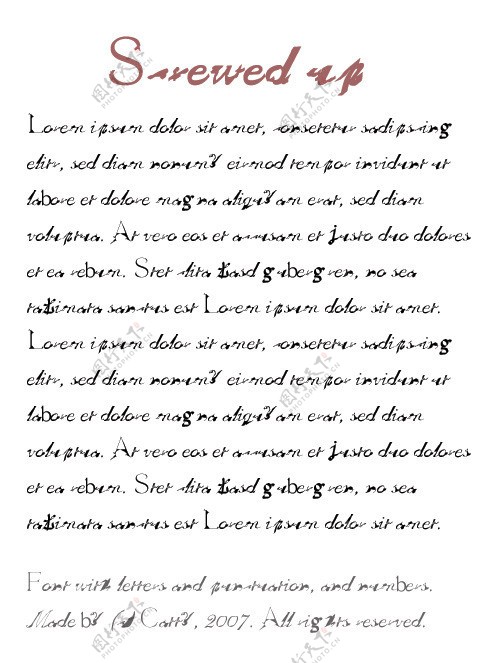 Screwed up
Lorem ipsum dolor sit amet, consetetur sadipscing
elitr, sed diam nonumy eirmod tempor invidunt ut
labore et dolore magna aliquyam erat, sed diam
voluptua. At vero eos et accusam et justo duo dolores
et ea rebum. Stet clita kasd gubergren, no sea
takimata sanctus est Lorem ipsum dolor sit amet.
Lorem ipsum dolor sit amet, consetetur sadipscing
elitr, sed diam nonumy eirmod tempor invidunt ut
labore et dolore magna aliquyam erat, sed diam
voluptua. At vero eos et accusam et justo duo dolores
et ea rebum. Stet clita kasd gubergren, no sea
takimata sanctus est Lorem ipsum dolor sit amet.
Font with letters and punctuation, and numbers.
Made by Catty, 2007. All rights reserved.